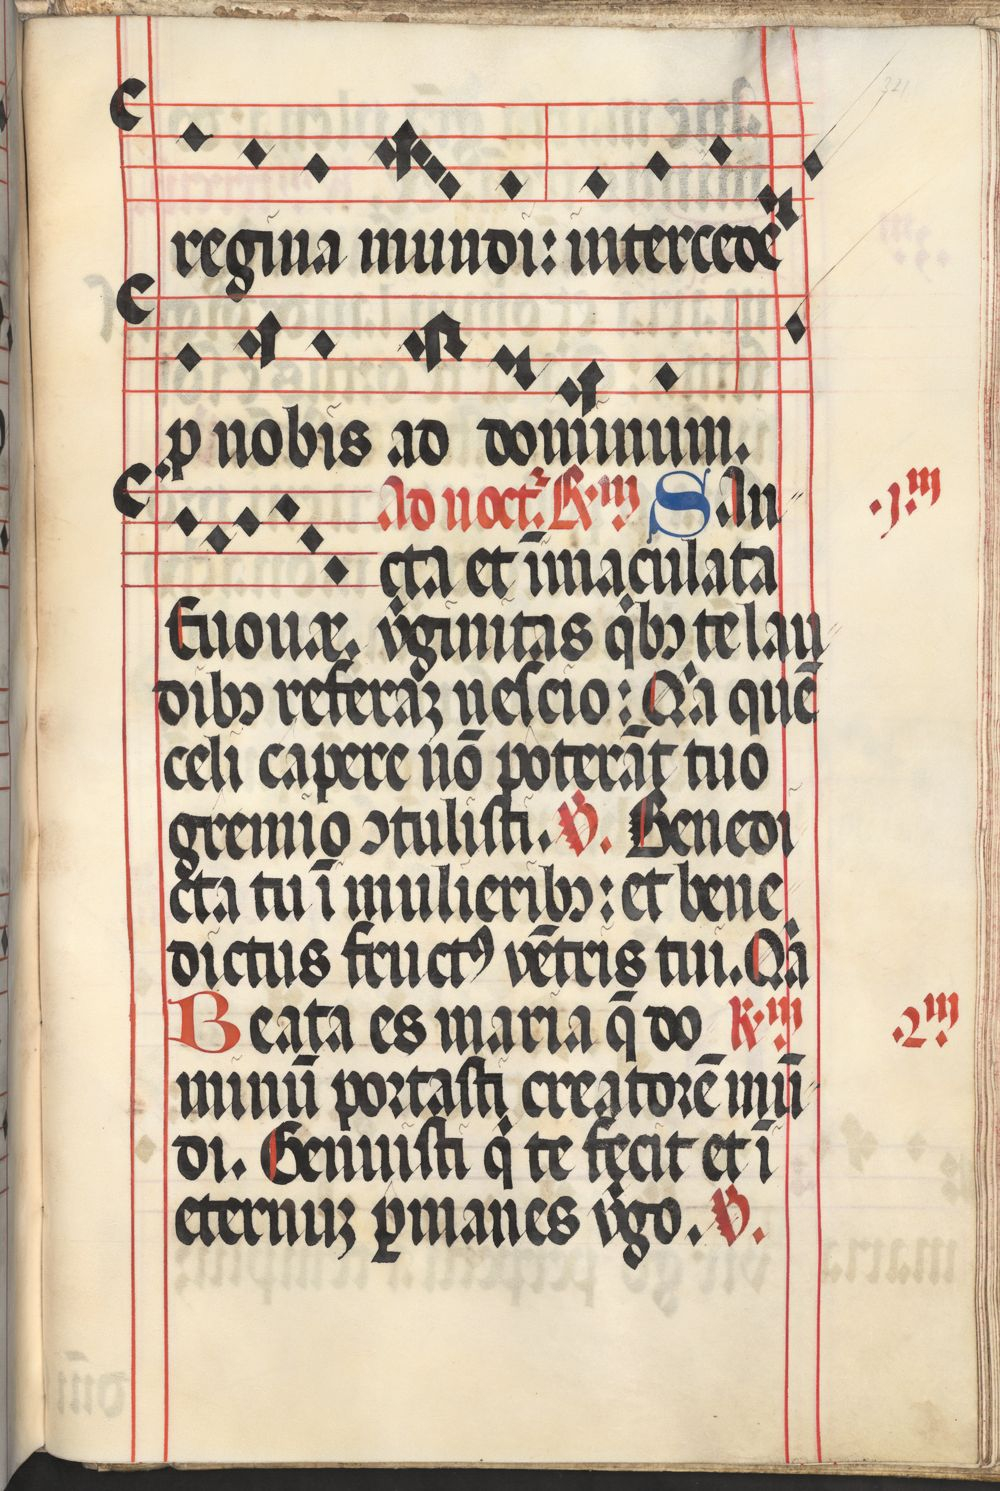 321
regina mundi: intercede
p nobis ad dominum.
Ad noct. R. m San
j.m
cta et īmaculata
Euouæ. v̇ginitas qͥbꝫ te lau
dibꝫ referā nescio: Qͥa quē
celi capere nō poterāt tuo
gremio ↄtulisti. V. Benedi
cta tu ī mulieribꝫ: et bene
dictus fructꝰ vētris tui. Qͥa
Beata es maria q̄ do R. m
2.m
minū portasti creatorē mū
di. Genuisti qͥ te fecit et ī
eternuꝫ ꝑmanes v̇go. V.